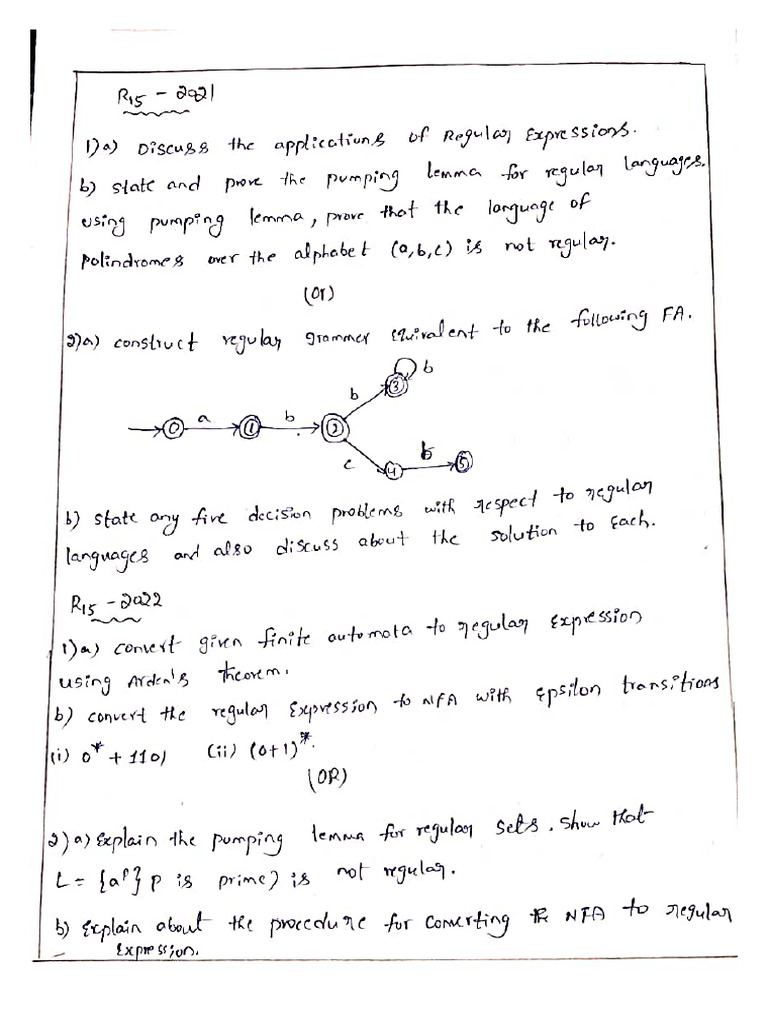 R15 - 2021
1)a) Discuss the applications of Regular Expressions.
b) state and prove the pumping lemma for regular languages.
using pumping lemma, prove that the language of
palindromes over the alphabet (a,b,c) is not regular.
(or)
2)a) construct regular grammer equivalent to the following FA.
b
b
3
0
a
1
b
2
c
4
b
5
b) state any five decision problems with respect to regular
languages and also discuss about the solution to each.
R15 - 2022
1)a) convert given finite automata to regular expression
using Arden's theorem.
b) convert the regular expression to NFA with epsilon transitions
(i) 0* + 1101 (ii) (0+1)*.
(OR)
2)a) Explain the pumping lemma for regular sets. show that
L = {a^p} p is prime) is not regular.
b) Explain about the procedure for converting the NFA to regular
Expression.